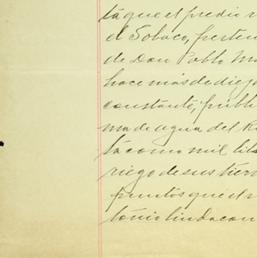 tá que el predio r
el Sobaco, perten
de Don Pablo Ma
hace más de diez
constante, públi
ma de agua del R
tá como mil lit
riego de sus tierr
puntos que el
tonio linda con